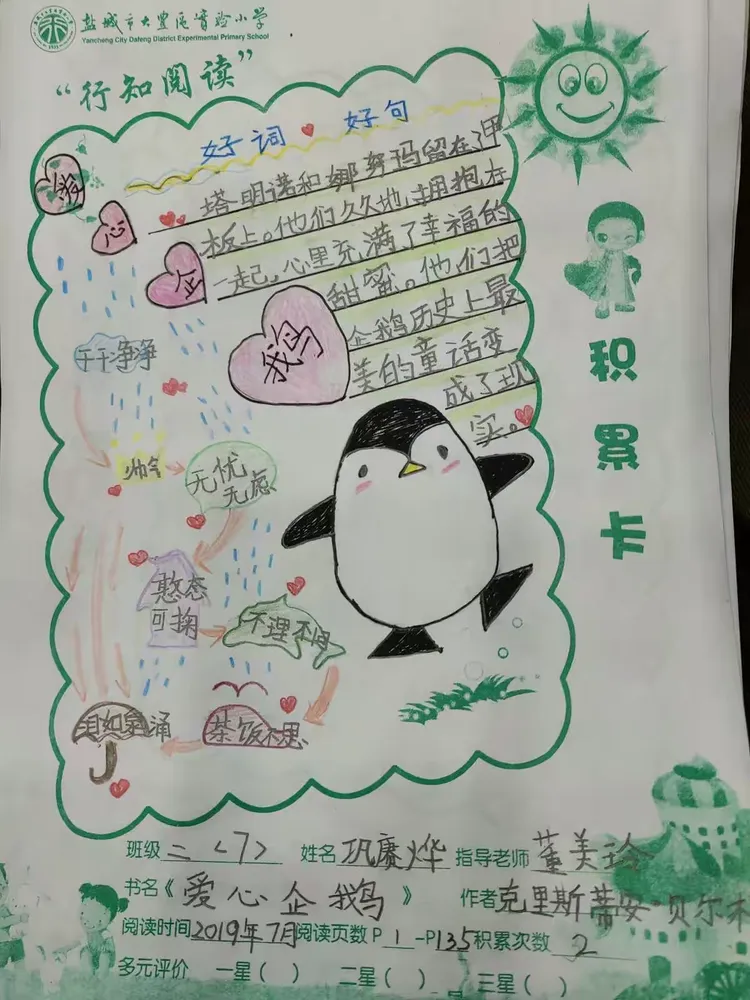 盐城市大丰区实验小学
Yancheng City Dafeng District Experimental Primary School
“行知阅读”
好词 好句
塔明诺和娜努玛留在甲
板上。他们久久地拥抱在
一起，心里充满了幸福的
甜蜜。他们把
企鹅历史上最
美的童话变
成了现
实。
爱
心
企
鹅
干干净净
帅气
无忧
无虑
憨态
可掬
不理不睬
茶饭不思
泪如泉涌
积
累
卡
班级 二〈7〉 姓名 巩赓烨 指导老师 董美玲
书名《爱心企鹅》 作者 克里斯蒂安·贝尔
阅读时间 2019年7月 阅读页数P 1 -P 135 积累次数 2
多元评价 一星( ) 二星( ) 三星( )